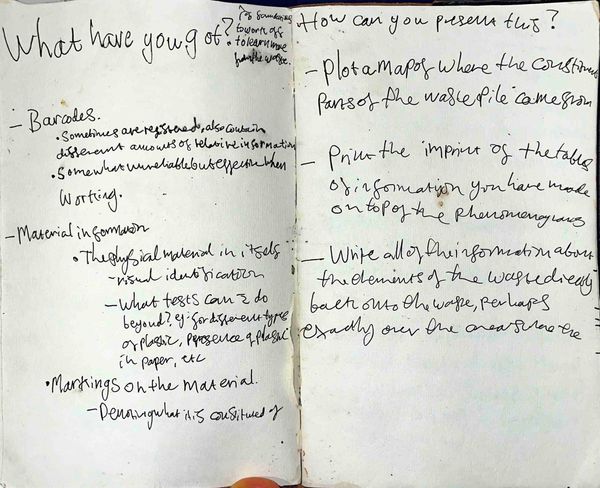 What have you got?
to work off
to learn more
from the waste.
– Barcodes.
• Sometimes are registered, also contain
different amounts of relative information
• Somewhat unreliable but effective when
working.
– Material information
• The physical material in itself
– visual identification
– What tests can I do
beyond? eg for different types
of plastic, presence of plastic
in paper, etc
• Markings on the material.
– Denoting what it is constituted of
How can you present this?
– Plot a map of where the constituent
parts of the waste pile came from
– Print the imprint of the tables
of information you have made
on top of the
– Write all of the information about
the elements of the waste directly
back onto the waste, perhaps
exactly over the area where the